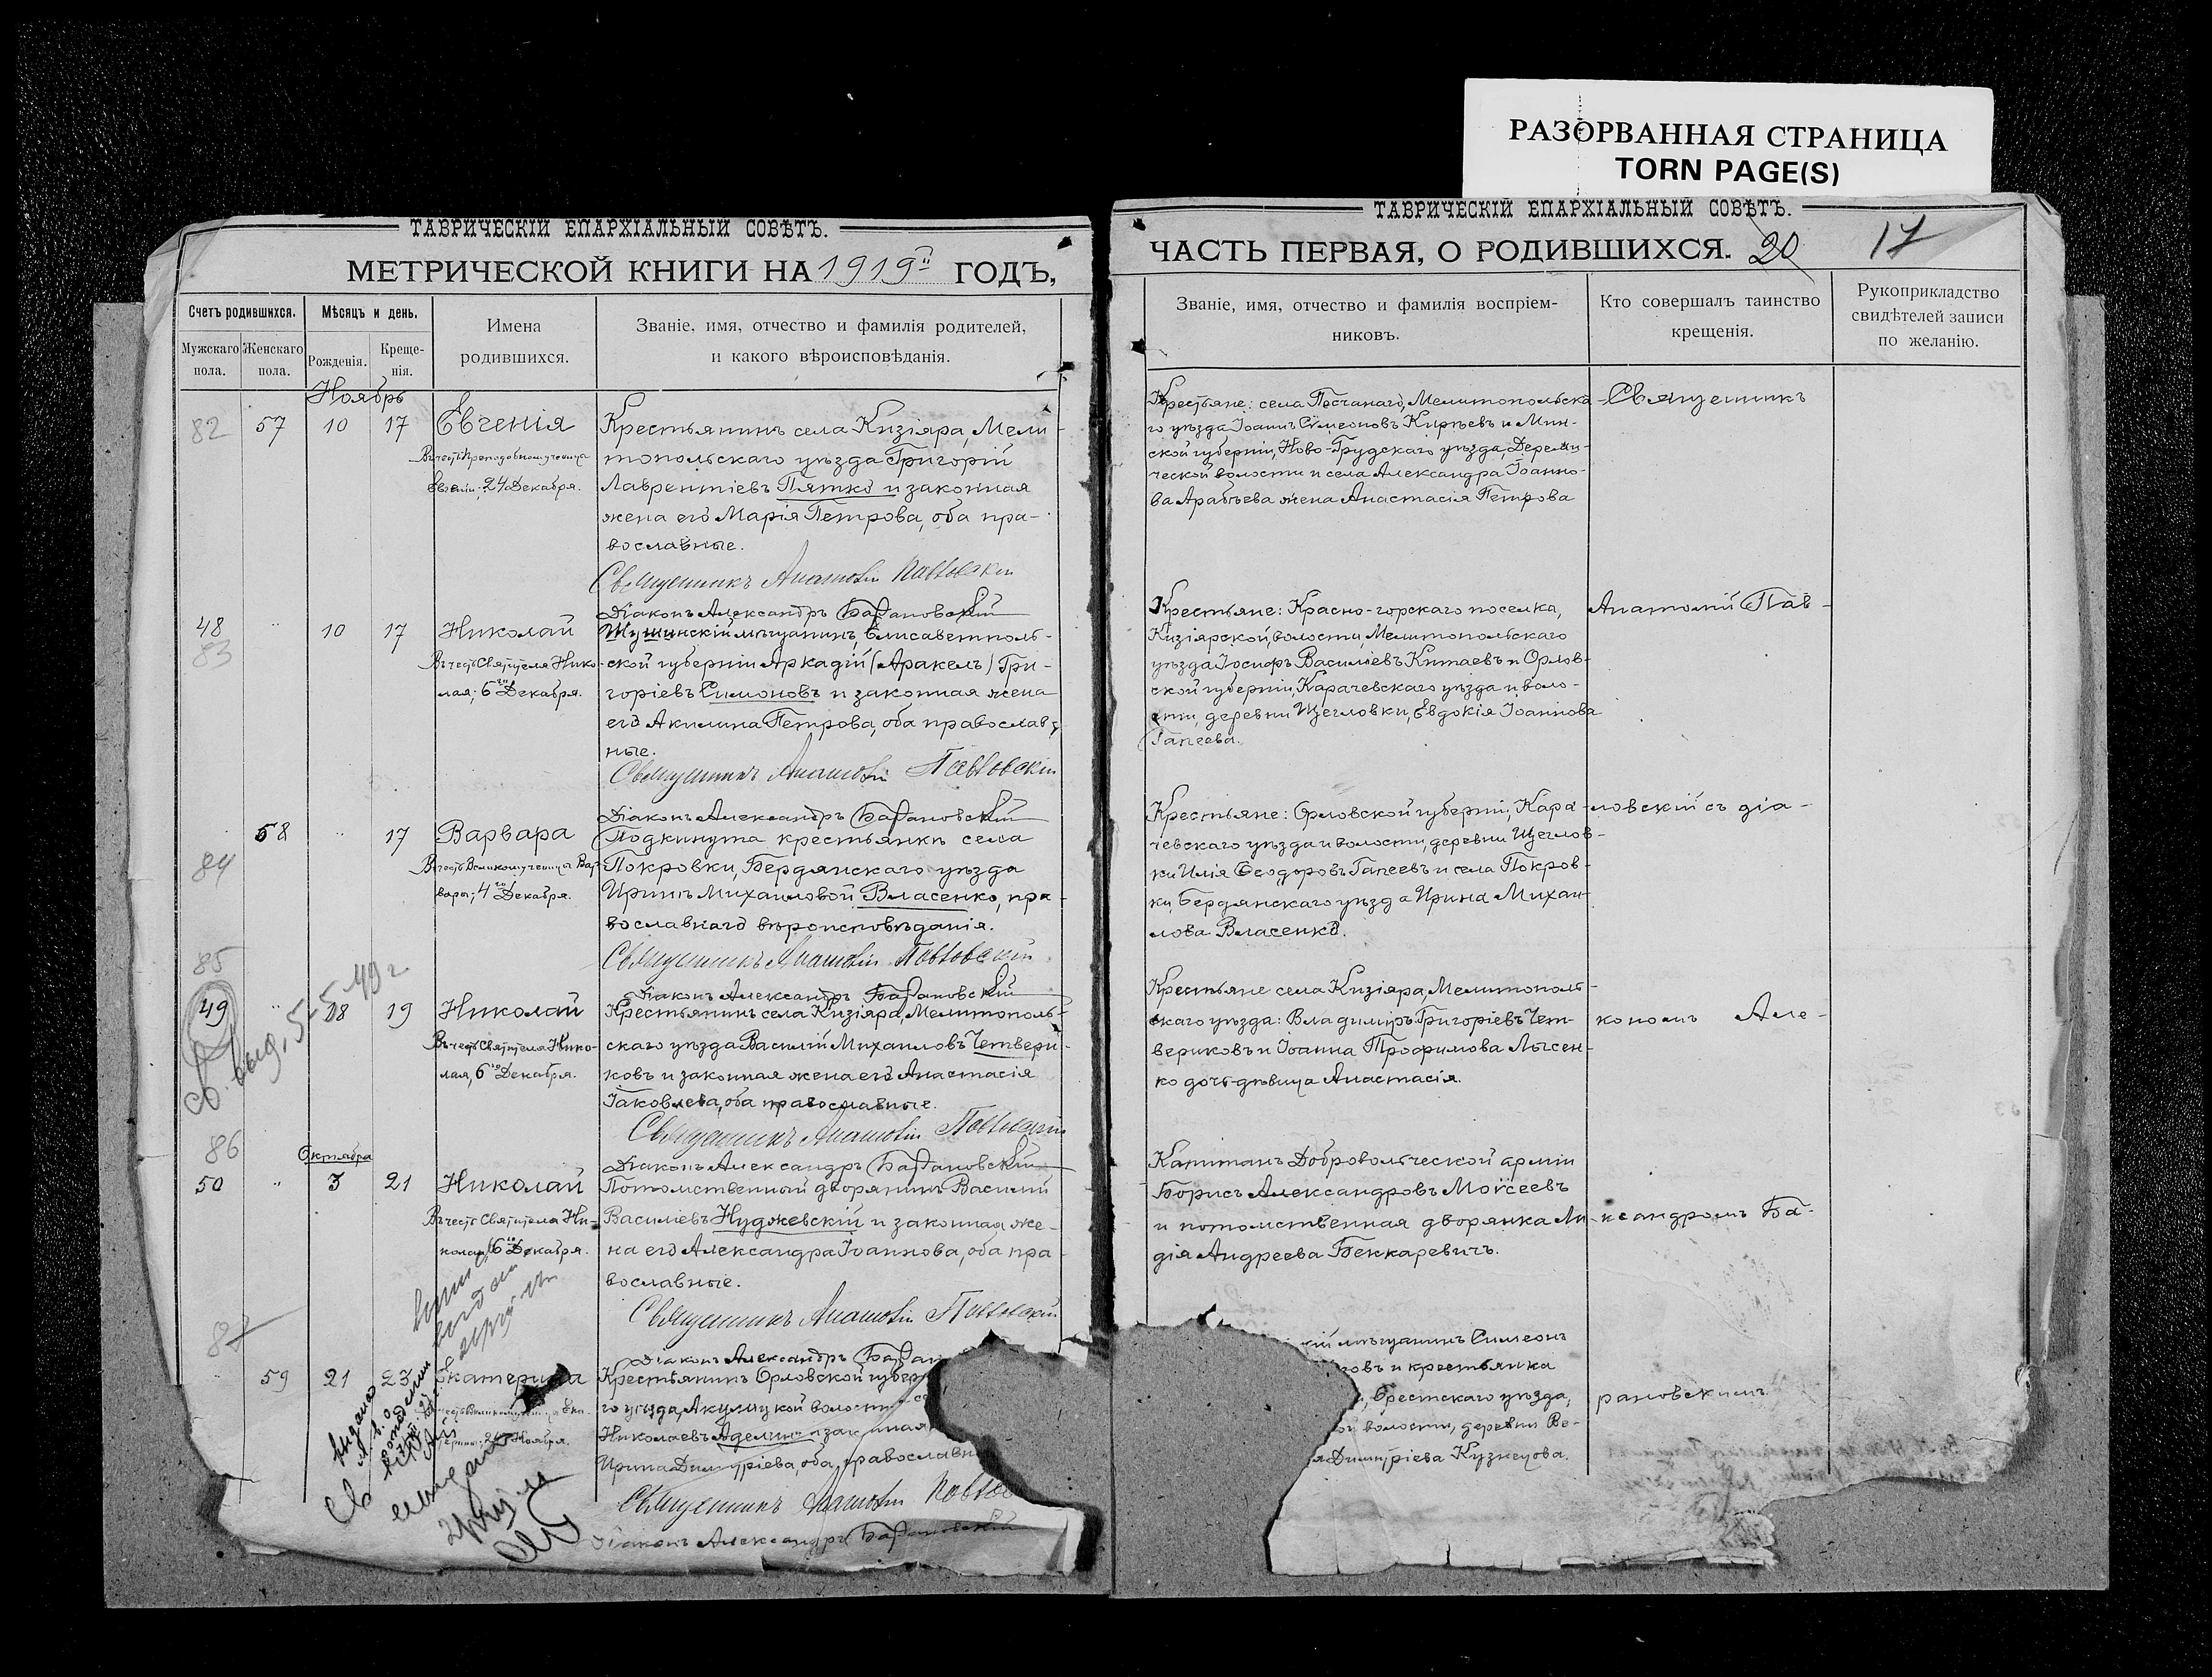 РАЗОРВАННАЯ СТРАНИЦА
TORN PAGE(S)
ТАВРИЧЕСКІЙ ЕПАРХІАЛЬНЫЙ СОВѢТЪ.
МЕТРИЧЕСКОЙ КНИГИ НА 1919й ГОДЪ,
Счетъ родившихся.
Мужскаго пола.
Женскаго пола.
Мѣсяцъ и день.
Рожденія.
Креще-
нія.
Имена
родившихся.
Званіе, имя, отчество и фамилія родителей,
и какого вѣроисповѣданія.
Ноябрь
82 57 10 17 Евгенія
Въ честь Преподобномученица
Евгеніи, 24 Декабря.
Крестьянинъ села Кизіяра, Мели-
топольскаго уѣзда Григорій
Лаврентіевъ Пятко и законная
жена его Марія Петрова, оба пра-
вославные.
Священникъ Анатолій Павловскій
Діаконъ Александръ Барановскій
48 " 10 17 Николай
83
Въ честь Святителя Нико-
лая, 6го Декабря.
Шушинскій мѣщанинъ, Елисаветполь-
ской губерніи Аркадій (Аракелъ) Гри-
горіевъ Симоновъ и законная жена
его Акилина Петрова, оба православ-
ные.
Священникъ Анатолій Павловскій
Діаконъ Александръ Барановскій
58 " 17 Варвара
84
Въ честь Великомученицы Вар-
вары, 4го Декабря.
Подкинута крестьянкѣ села
Покровки, Бердянскаго уѣзда
Иринѣ Михаиловой Власенко, пра-
вославнаго вѣроисповѣданія.
Священникъ Анатолій Павловскій
Діаконъ Александръ Барановскій
85
49 " 18 19 Николай
Въ честь Святителя Нико-
лая, 6го Декабря.
Крестьянинъ села Кизіяра, Мелитополь-
скаго уѣзда Василій Михаиловъ Четвери-
ковъ и законная жена его Анастасія
Іаковлева, оба православные.
Священникъ Анатолій Павловскій
Діаконъ Александръ Барановскій
86
Октября
50 " 3 21 Николай
Въ честь Святителя Ни-
колая, 6го Декабря.
Потомственный дворянинъ Василій
Василіевъ Нуджевскій и законная же-
на его Александра Іоаннова, оба пра-
вославные.
Священникъ Анатолій Павловскій
Діаконъ Александръ Баран
87
59 21 23 Екатерина
24го Ноября.
Крестьянинъ Орловской губер
го уѣзда, Акулицкой волости
Николаевъ и законная
Ирина Димитріева, оба православн
Священникъ Анатолій Павлов
Діаконъ Александръ Барановскій
ТАВРИЧЕСКІЙ ЕПАРХІАЛЬНЫЙ СОВѢТЪ.
ЧАСТЬ ПЕРВАЯ, О РОДИВШИХСЯ. 20 17
Званіе, имя, отчество и фамилія воспріем-
никовъ.
Кто совершалъ таинство
крещенія.
Рукоприкладство
свидѣтелей записи
по желанію.
Крестьяне: села Песчанаго, Мелитопольска-
го уѣзда Іоаннъ Симеоновъ Кирѣевъ и Мин-
ской губерніи, Ново-Грудскаго уѣзда,
ческой волости и села Александра Іоанно-
ва Арабьева жена Анастасія Петрова
Священникъ
Крестьяне: Красно-горскаго поселка,
Кизіярской волости, Мелитопольскаго
уѣзда Іосифъ Василіевъ Китаевъ и Орлов-
ской губерніи, Карачевскаго уѣзда и воло-
сти, деревни Щегловки, Евдокія Іоаннова
Гапеева.
Анатолій Пав-
Крестьяне: Орловской губерніи, Кара-
чевскаго уѣзда и волости, деревни Щеглов-
ки Илія Ѳеодоровъ Гапеевъ и села Покров-
ки, Бердянскаго уѣзда Ирина Михаи-
лова Власенко.
ловскій съ діа-
Крестьяне села Кизіяра, Мелитополь-
скаго уѣзда: Владиміръ Григоріевъ Чет-
вериковъ и Іоанна Трофимова Лысен-
ко дочь-дѣвица Анастасія.
кономъ Але-
Капитанъ Добровольческой арміи
Борисъ Александровъ Моѵсеевъ
и потомственная дворянка Ли-
дія Андреева Беккаревичъ.
ксандромъ Ба-
кій мѣщанинъ Симеонъ
овъ и крестьянка
, Брестскаго уѣзда,
ой волости, деревни Ве-
я Димитріева Кузнецова.
рановскимъ.